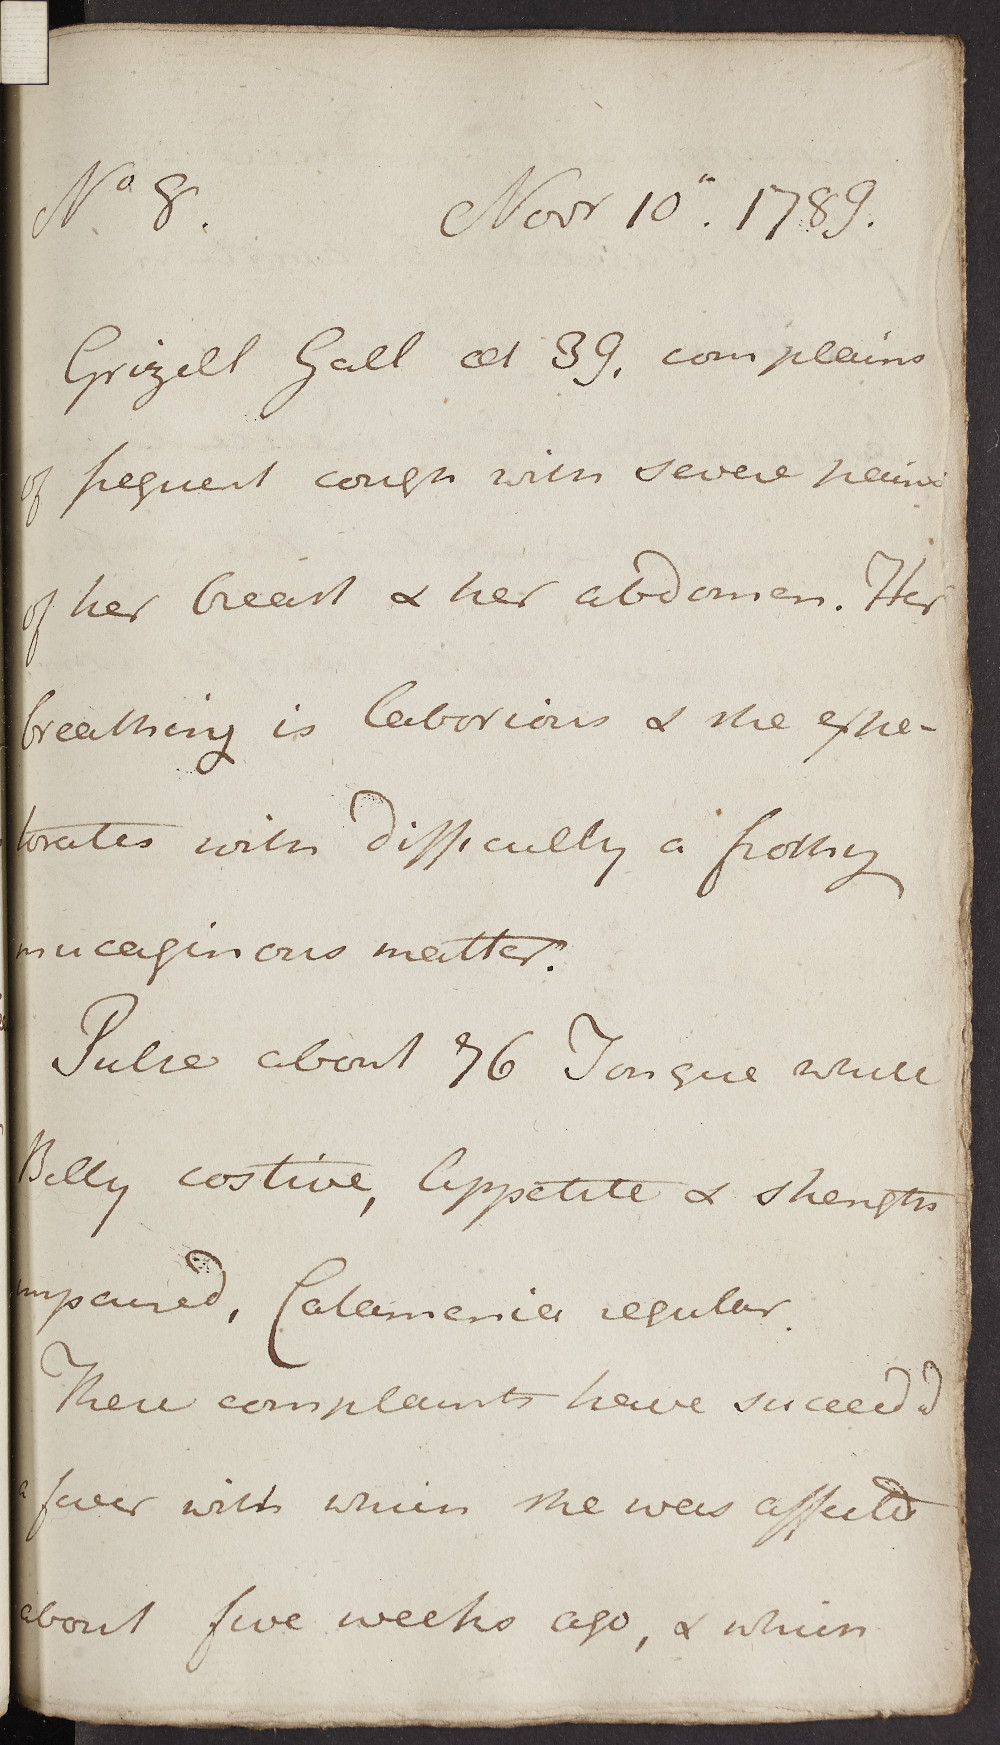 No 8. Novr 10". 1789.
Grizell Gall æt 39, complains
of frequent cough with severe pains
of her breast & her abdomen. Her
breathing is laborious & she expe-
torates with difficulty a frothy
mucaginous matter.
Pulse about 76 Tongue white
Belly costive, Appetite & strength
impaired, Catamenia regular.
These complaints have succeed'd
a fever with which she was affected
about five weeks ago, & which